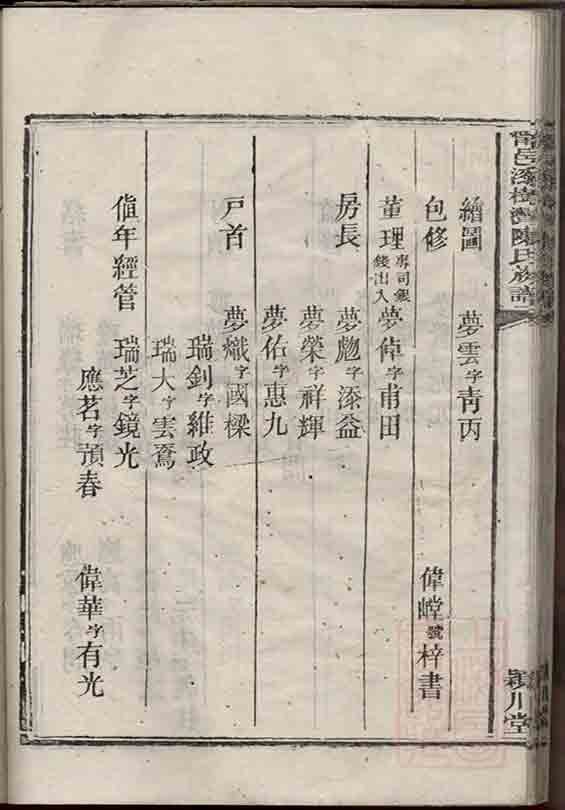 甯邑添樹灣陳氏族譜
潁川堂
繪圖 夢雲字靑丙
包修 偉嵿號梓書
董理專司銀錢出入 夢倬字甫田
房長 夢勉字添益
夢榮字祥輝
夢佑字惠九
戸首 夢熾字國樑
瑞釗字維政
瑞大字雲騫
値年經管 瑞芝字鏡光
應茗字蘋春 偉華字有光